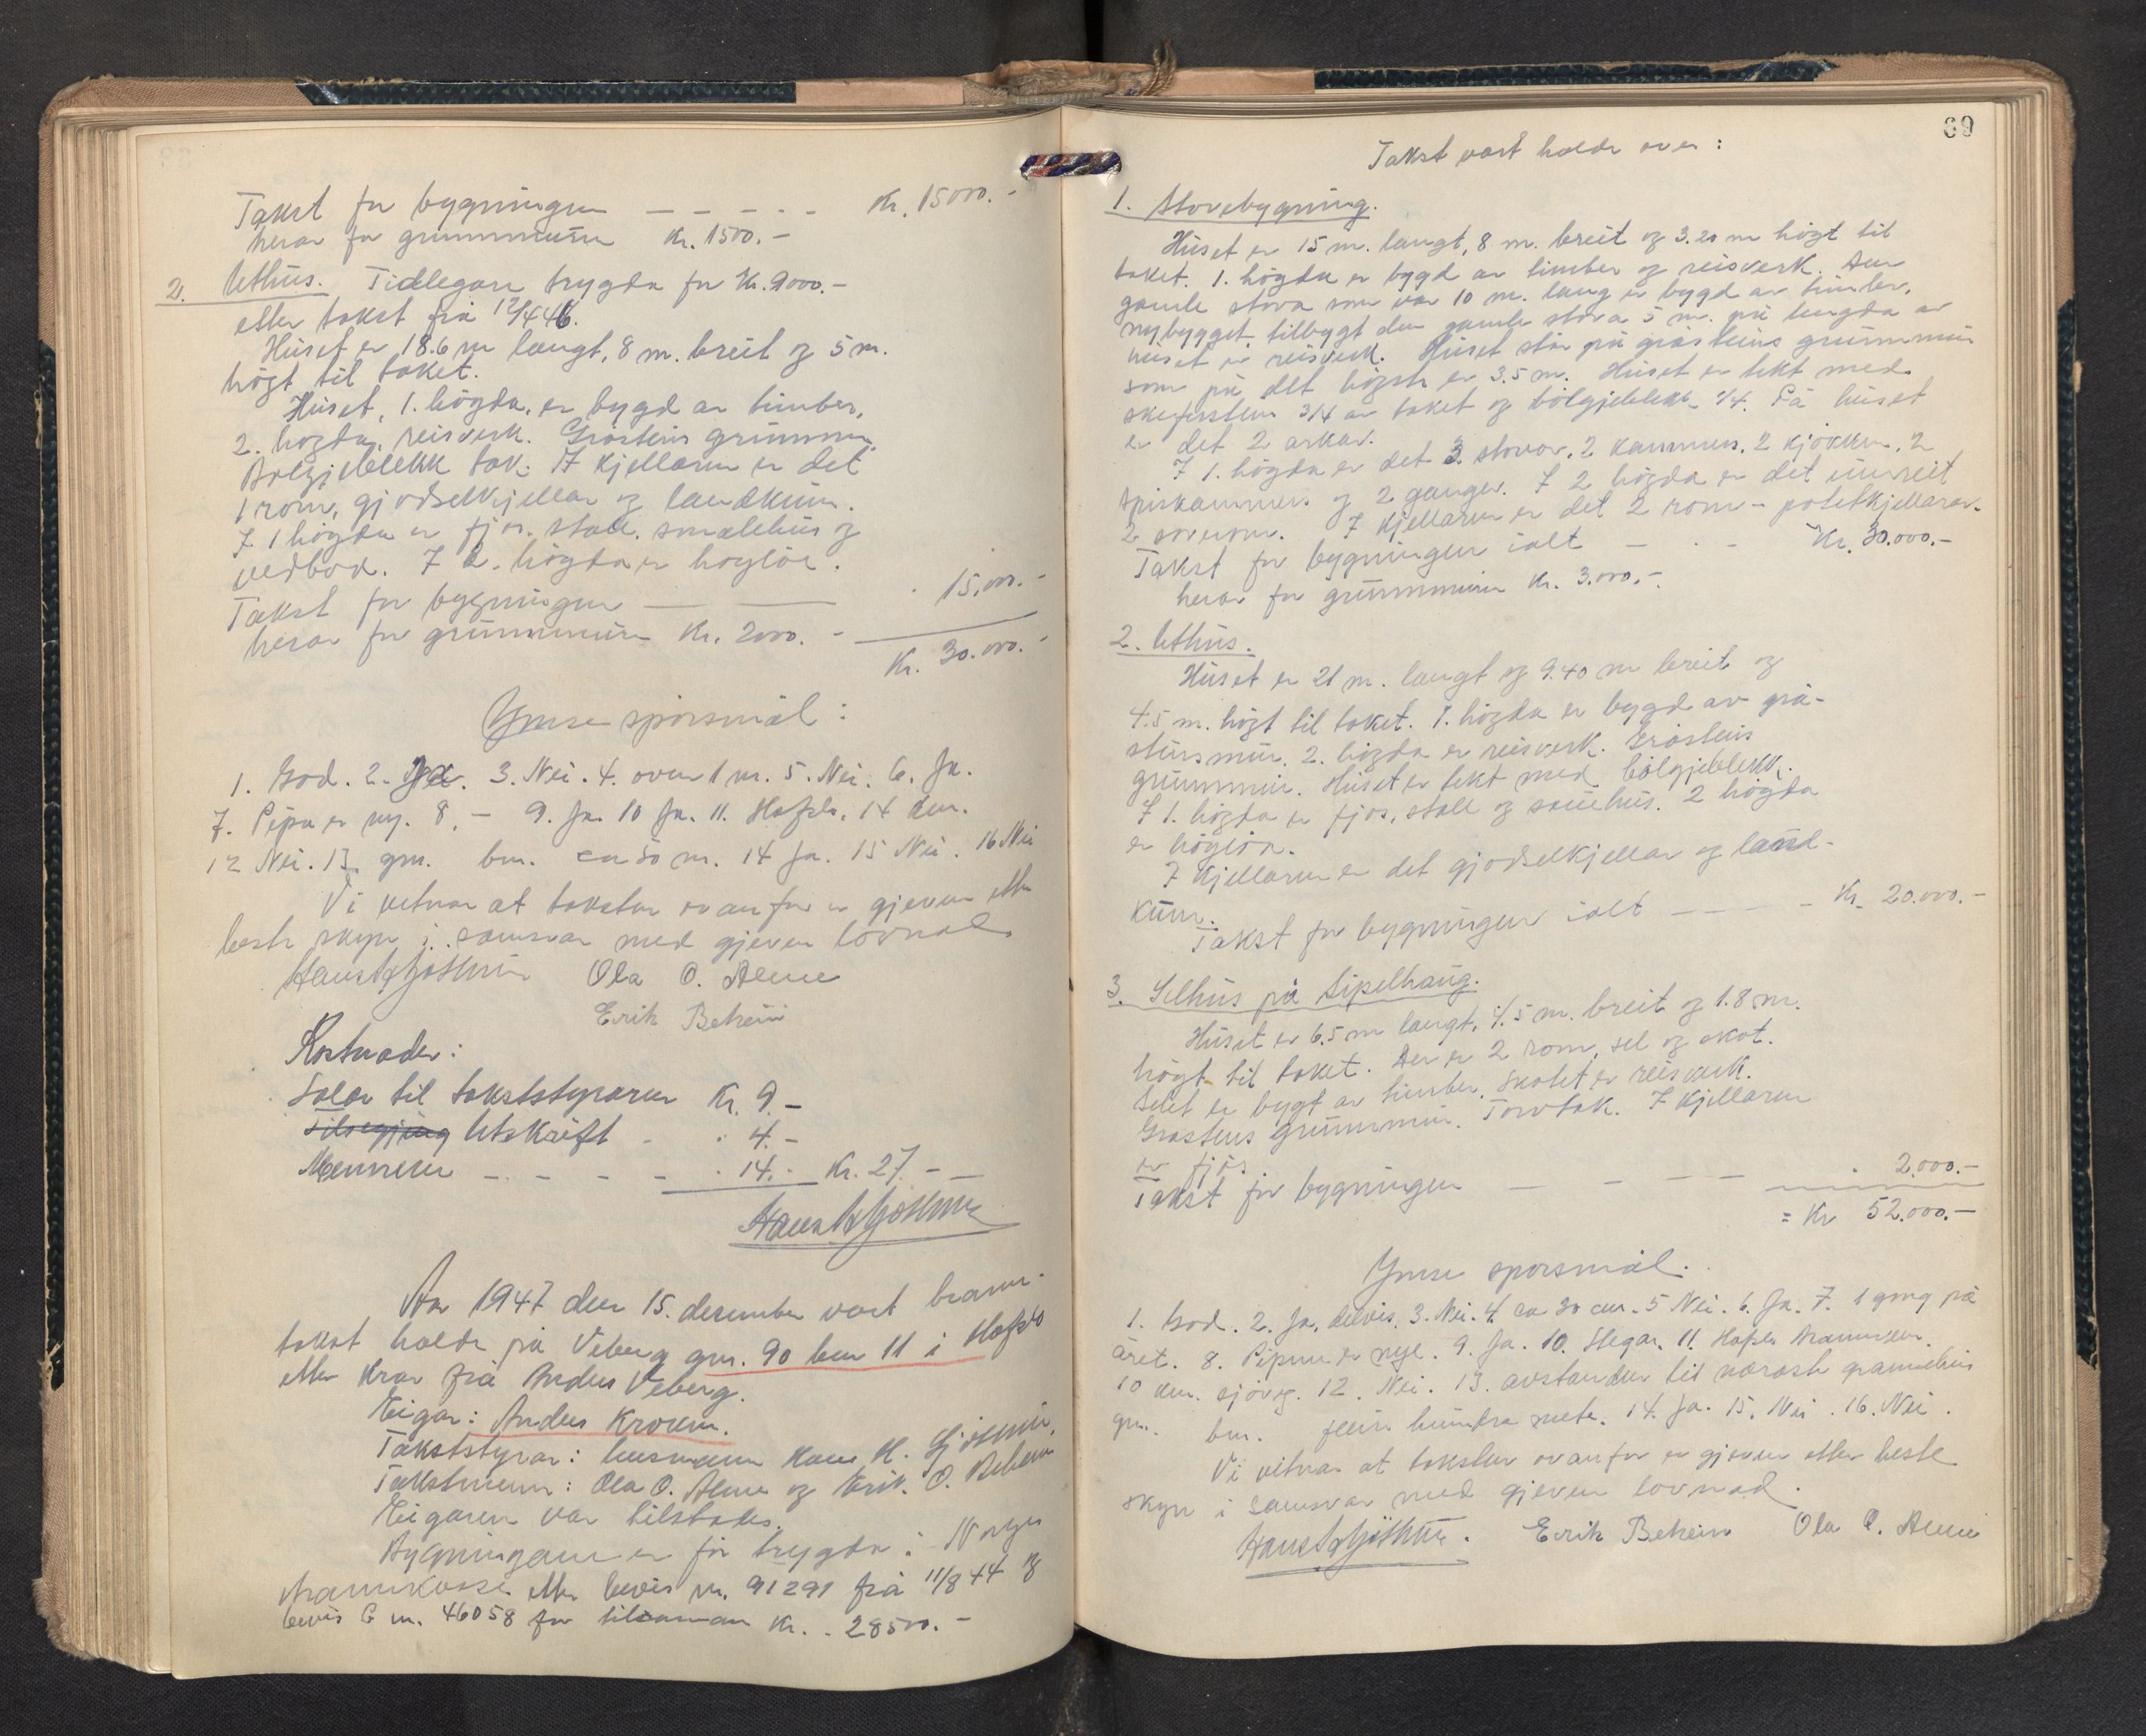 Takst for bygningen — — — — — Kr. 15000.-
herav for grunnmuren Kr. 1500.-
2. Uthus. Tidlegare trygda for Kr. 9000.-
etter takst frå 12/4 46.
Huset er 18.6 m langt, 8 m. breit og 5 m.
högt til taket.
Huset, 1. högda, er bygd av timber,
2. högda, reisverk. Gråsteins grunnmur.
Bølgjeblekk tak. I kjellaren er det
1 rom, gjødselkjellar og landkum.
I 1 högda er fjøs, stall, smalehus og
vedbod. I 2. högda er høyløe.
Takst for bygningen — — 15.000.-
herav for grunnmuren Kr. 2000.-
Kr. 30.000.-
Ymse spørsmål:
1. God. 2. Ja. 3. Nei. 4. over 1 m. 5. Nei. 6. Ja.
7. Pipa er ny. 8. — 9. Ja. 10 Ja. 11. Hafslo, 14 km.
12 Nei. 13. gnr. bnr. ca 50 m. 14 Ja. 15 Nei. 16 Nei
Vi vitnar at taksten ovanfor er gjeven etter
beste skyn i samsvar med gjeven lovnad.
Hans H Gjøthun Ola O. Alme
Erik Beheim
Kostnader:
Salær til takststyraren Kr. 9.-
Utskrift - . 4.-
Mennene — - - - - . 14.- Kr. 27.- —
Hans H Gjøthun
Aar 1947 den 15. desember vart brann-
takst halde på Veberg gnr. 90 bnr 11 i Hafslo
etter krav frå Anders Veberg.
Eigar: Anders Kroken.
Takststyrar: lensmann Hans H. Gjøthun.
Takstmenn: Ola O. Alme og Erik O. Beheim
Eigaren var tilstades.
Bygningane er før trygda i Norges
Brannkasse etter bevis nr. 91291 frå 11/8 44 og
bevis C nr. 46058 for tilsaman Kr. 28500.-
69
Takst vart halde over:
1. Stovebygning.
Huset er 15 m. langt, 8 m. breit og 3.20 m högt til
taket. 1. högda er bygd av timber og reisverk. Den
gamle stova som var 10 m. lang er bygd av timber,
nybygget tilbygt den gamle stova 5 m. på lengda av
huset er reisverk. Huset står på gråsteins grunnmur
som på det högste er 3.5 m. Huset er tekt med
skiferstein 3/4 av taket og bølgjeblekk 1/4. På huset
er det 2 arkar.
I 1. högda er det 3 stovor, 2 kammers, 2 kjøkken, 2
spiskammers og 2 gangar. I 2 högda er det innreit
2 soverom. I kjellaren er det 2 rom - potetkjellarar.
Takst for bygningen ialt — . - Kr. 30.000.-
herav for grunnmuren Kr. 3.000.-
2. Uthus.
Huset er 21 m. langt og 9.40 m breit og
4.5 m. högt til taket. 1. högda er bygd av grå-
steinsmur. 2. högda er reisverk. Gråsteins
grunnmur. Huset er tekt med bølgjeblekk.
I 1. högda er fjøs, stall og sauehus. 2 högda
er høyløa.
I kjellaren er det gjødselkjellar og land-
kum.
Takst for bygningen ialt — — — - Kr. 20.000.-
3. Selhus på Sipelhaug.
Huset er 6.5 m langt, 4.5 m. breit og 1.8 m.
högt til taket. Der er 2 rom, sel og skot.
Selet er bygt av timber. Skotet er reisverk.
Gråsteins grunnmur. Torvtak. I kjellaren
er fjøs.
Takst for bygningen — - — — . 2.000.-
= Kr 52.000.-
Ymse spørsmål.
1. God. 2. Ja, delvis. 3. Nei. 4. ca 30 cm. 5 Nei. 6. Ja. 7. 1 gong på
året. 8. Pipene er nye. 9. Ja. 10. Stegar. 11. Hafslo Brannvern
10 km. 12. Nei. 13. avstanden til næraste grannehus
gnr. bnr. fleire hundre meter. 14. Ja. 15. Nei. 16. Nei.
Vi vitnar at taksten ovanfor er gjeven etter beste
skyn i samsvar med gjeven lovnad.
Hans H Gjøthun. Erik Beheim Ola O. Alme